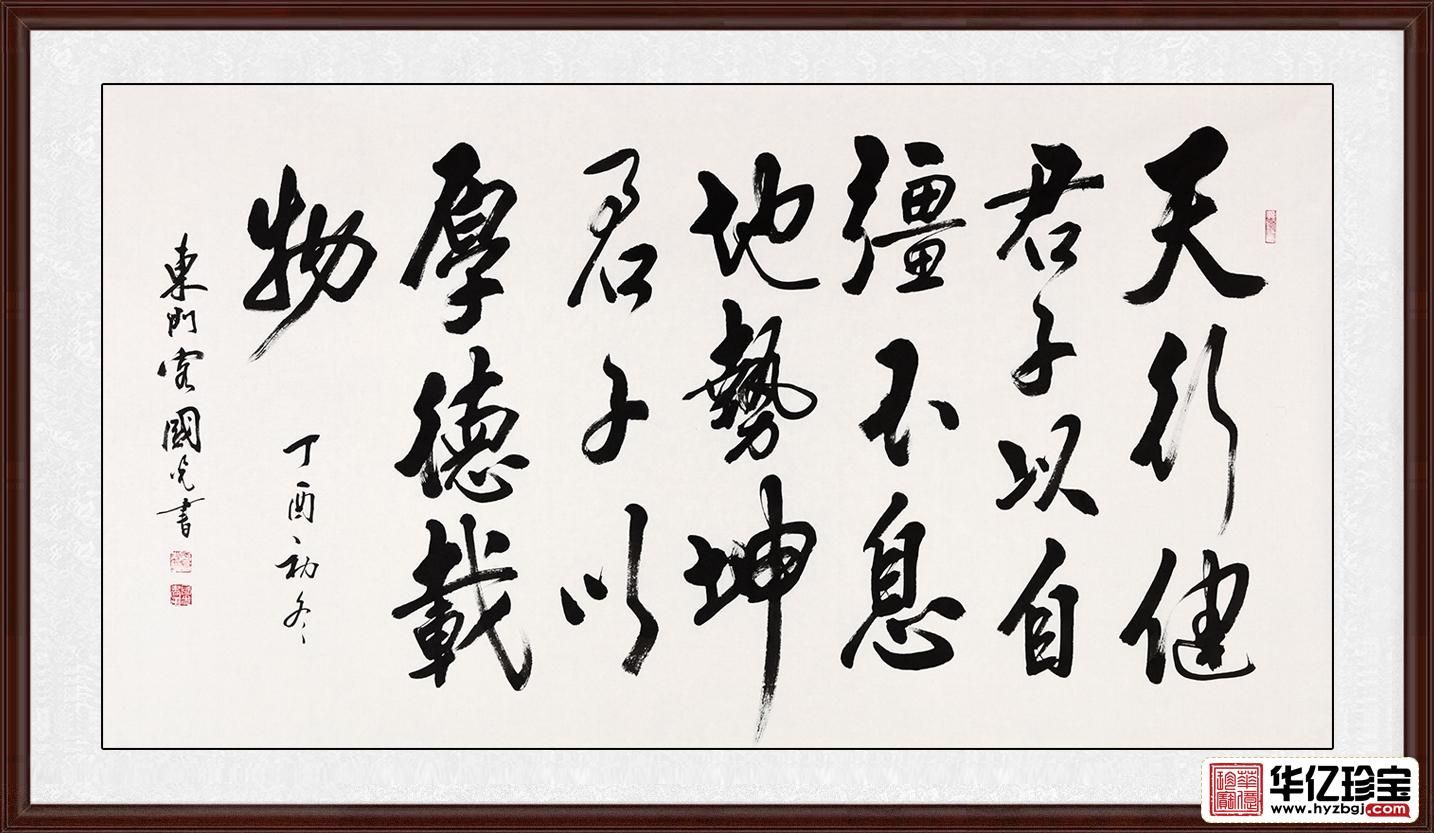 天行健
君子以自
彊不息
地勢坤
君子以
厚德載
物
丁酉初冬
東門客國光書
华亿珍宝
www.hyzbgj.com